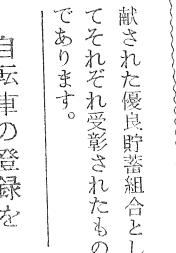 献された優良貯蓄組合とし
てそれぞれ受彰されたもの
であります。
自転車の登録を